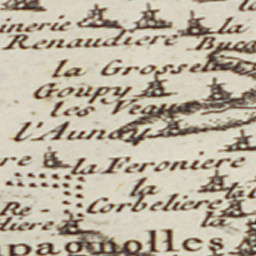 inerie la
Renaudiere Buc
la Grosse
Goupy
les Veaux
l'Aunay
re la Feroniere
la
Re- Corbeliere la
diere
pagnolles